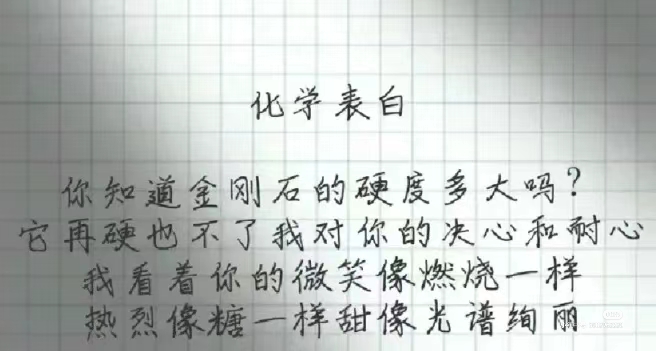 化学表白
你知道金刚石的硬度多大吗?
它再硬也不了我对你的决心和耐心
我看着你的微笑像燃烧一样
热烈像糖一样甜像光谱绚丽